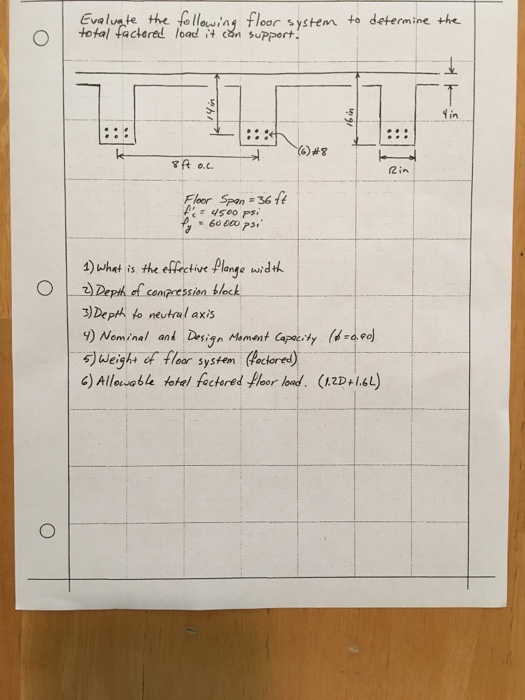 Evaluate the following floor system to determine the
total factored load it can support.
14 in
16 in
4 in
(6) #8
8 ft o.c.
12 in
Floor Span = 36 ft
f'c = 4500 psi
fy = 60000 psi
1) What is the effective flange width
2) Depth of compression block
3) Depth to neutral axis
4) Nominal and Design Moment Capacity (ϕ=0.90)
5) Weight of floor system (factored)
6) Allowable total factored floor load. (1.2D+1.6L)